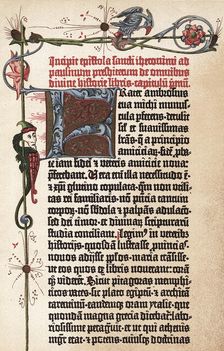 Incipit epistola sancti iheronimi ad
paulinum presbiterum de omnibus
divine historie libris. capitulū prmū.
Frater ambrosius
tua michi munus-
cula perferens. detulit
sil' et suavissimas
lrās. q̄ a principio
amicicie. fidē pba-
te iam fidei et veteris amicicie nova:
preferebant. Vera enī illa necessitudo ē.
et xpī glutino copulata. qm̄ non utili-
tas rei familiaris. nō presentia tantum
corporū. nō subdola et palpās adulacō:
sed dei timor. et divinarū scripturarum
studia conciliant. Legim⁹ in veterib⁹
historijs. quosdā lustrasse p̄uincias.
novos adisse p̄ls. maria trāsisse.
ut eos quos ex libris noverant: corā
q̄ viderēt. Sic pitagoras memphi-
ticos vates. sic plato egiptū. et architā
tarentinū. eandemq̄ oram ytalie. que
quondā magna grecia dicebat̄: labo-
riosissime peragravit. et ut qui athenis
mgr̄ erat. et potens. cuiusq̄ doctrinas